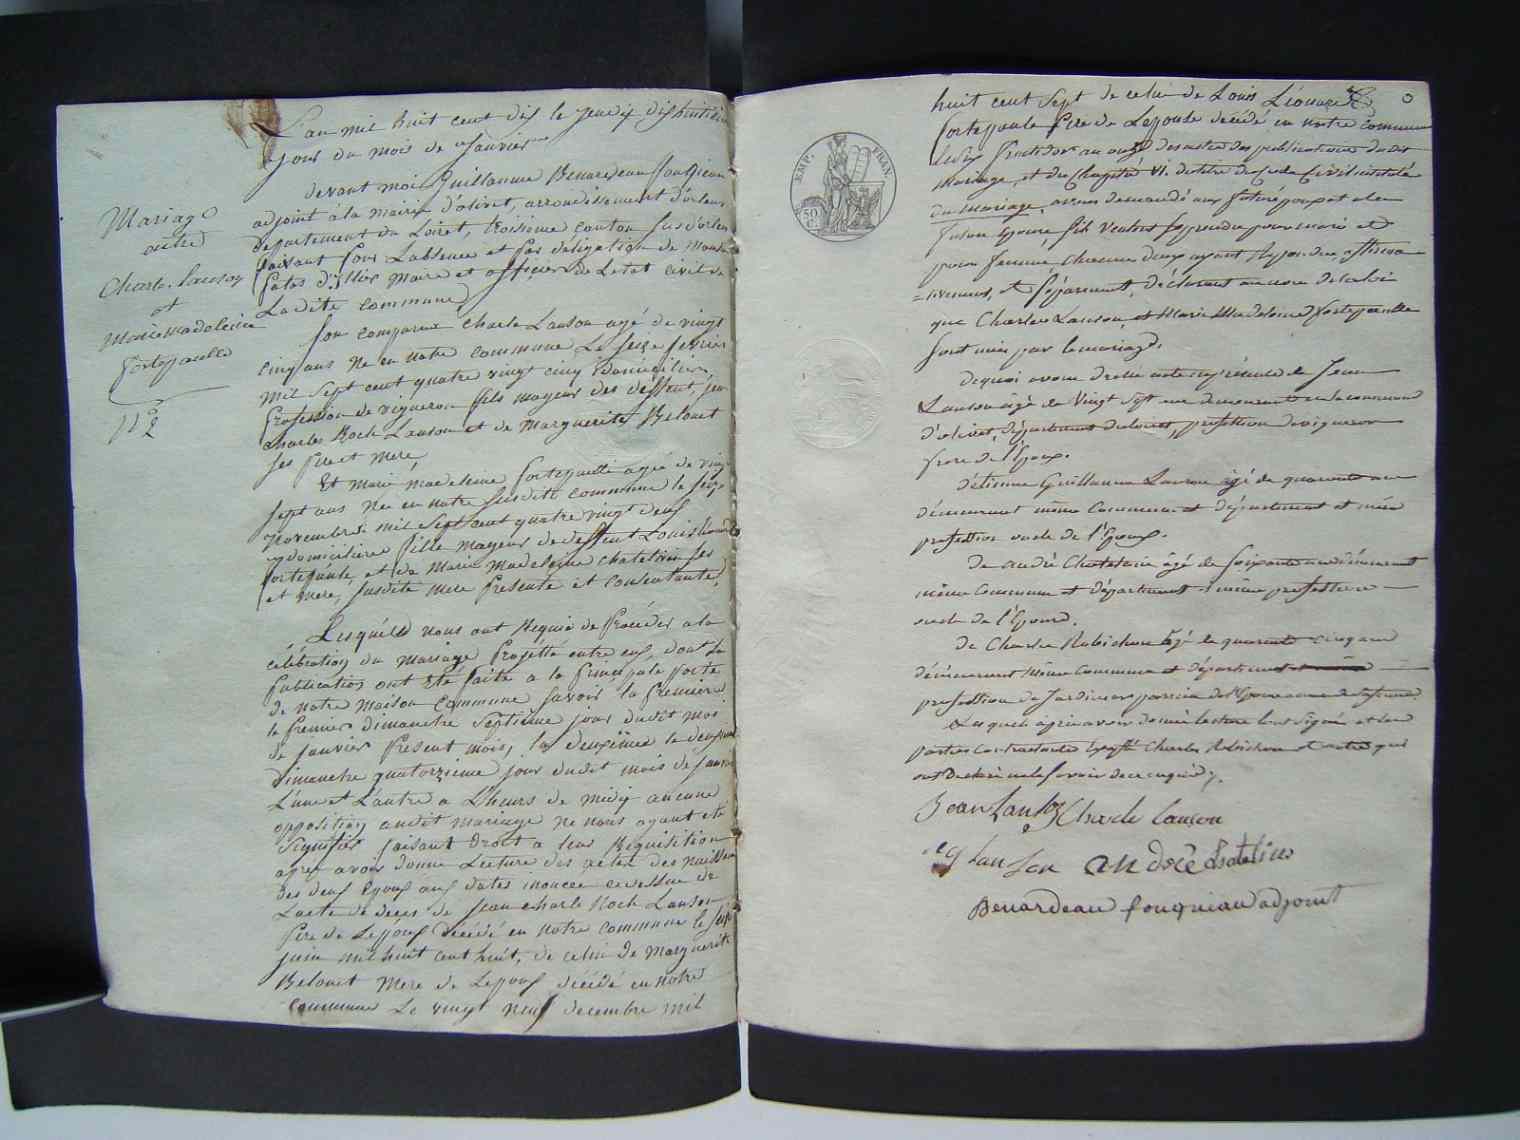 L'an mil huit cent dix le jeudy dixhuitieme
jour du mois de Janvier
devant moi Guillaume Benardeau fouqueau
adjoint à la mairie d'olivet, arrondissement d'orleans
departement du Loiret, troisieme canton sus d'orleans
faisant pour L'absence et par deligation de Monsr
maire et officier de L'etat civil de
La dite commune
Mariage
entre
Charle Lanson
et
Marie Madeleine
fortepaulle
N° 2
Son comparu Charle Lanson agé de vingt
cinq ans né en notre commune Le seize fevrier
mil sept cent quatre vingt cinq domicilier
Profession de vigneron fils mayeur des deffunt jean
charles Roch Lanson et de Marguerite Belouet
ses Pere et mere,
Et Marie Madeleine fortepaulle agée de vingt
sept ans Née en notre susdite commune le seize
Novembre mil sept cent quatre vingt deux
domiciliere fille mayeur de deffunt Louis Léonard
fortepaule, et de Marie Madeleine chatelain ses Pere
et mere, susdite mere Presente et consentante,
Lesquelle nous ont Requie de Procéder a la
célébration du mariage Projetté entre eux, dont la
Publication ont été faite a la Principale Porte
de notre maison commune savoir la Premiere
le Premier dimanche septieme jour dudit moi
de janvier Present mois, la deuxieme le deuxieme
Dimanche quatorzieme jour dudit mois de janvier
L'une et L'autre a L'heure de midy aucune
opposition audit mariage ne nous ayant été
signifier faisant Droit a leur Requisition
apres avoir donné Lecture des actes des naissance
des deux Epoux aux dates inoncée ce dessue de
L'acte de deces de jean charle Roch Lanson
Pere de L'epoux decédé en notre commune le sept
juin mil huit cent huit, de celui de Marguerite
Belouet Mere de L'epoux décédé en notre
commune Le vingt neuf decembre mil
huit cent sept de celui de Louis Léonard
fortepaule Pere de L'epouse decédé en notre commune
le six fructidor an onze des actes des publications dudit
Mariage, et du Chapitre VI. du titre du Code Civil intitulé
du Mariage, avons demandé aux futur époux et a la
future Epouse, s'il veulent se prendre pour mari et
pour femme chacune d'eux ayant Répondue affirma
=tivement, et séparement, déclarent au nom de la loi
que Charles Lanson, et Marie Madeleine fortepaulle
sont unis par le mariage.
De quoi avons dressé acte en présence de Jean
Lanson agé de Vingt sept ans demeurant en la commune
d'olivet, département du loiret, profession de vigneron
frere de l'Epoux.
D'etienne Guillaume Lanson agé de quarante ans
demeurant même Commune et département et même
profession oncle de l'Epoux.
De andré Chatelain âgé de soixante ans demeurant
même Commune et département et même profession
oncle de l'Epouse.
De Charle Robichon âgé de quarante cinq ans
demeurant Même Commune et département
profession de Jardinier parrein de l'Epouse
Lesquels après avoir donné lecture l'ont signé et les
parties contractantes Excepté Charles Robichon et autres qui
ont declaré ne le savoir de ce enquis.
Jean Lanson Charle Lanson
eg Lanson andré chatelain
Benardeau fouqueau adjoint
EMP. FRAN.
50
C.